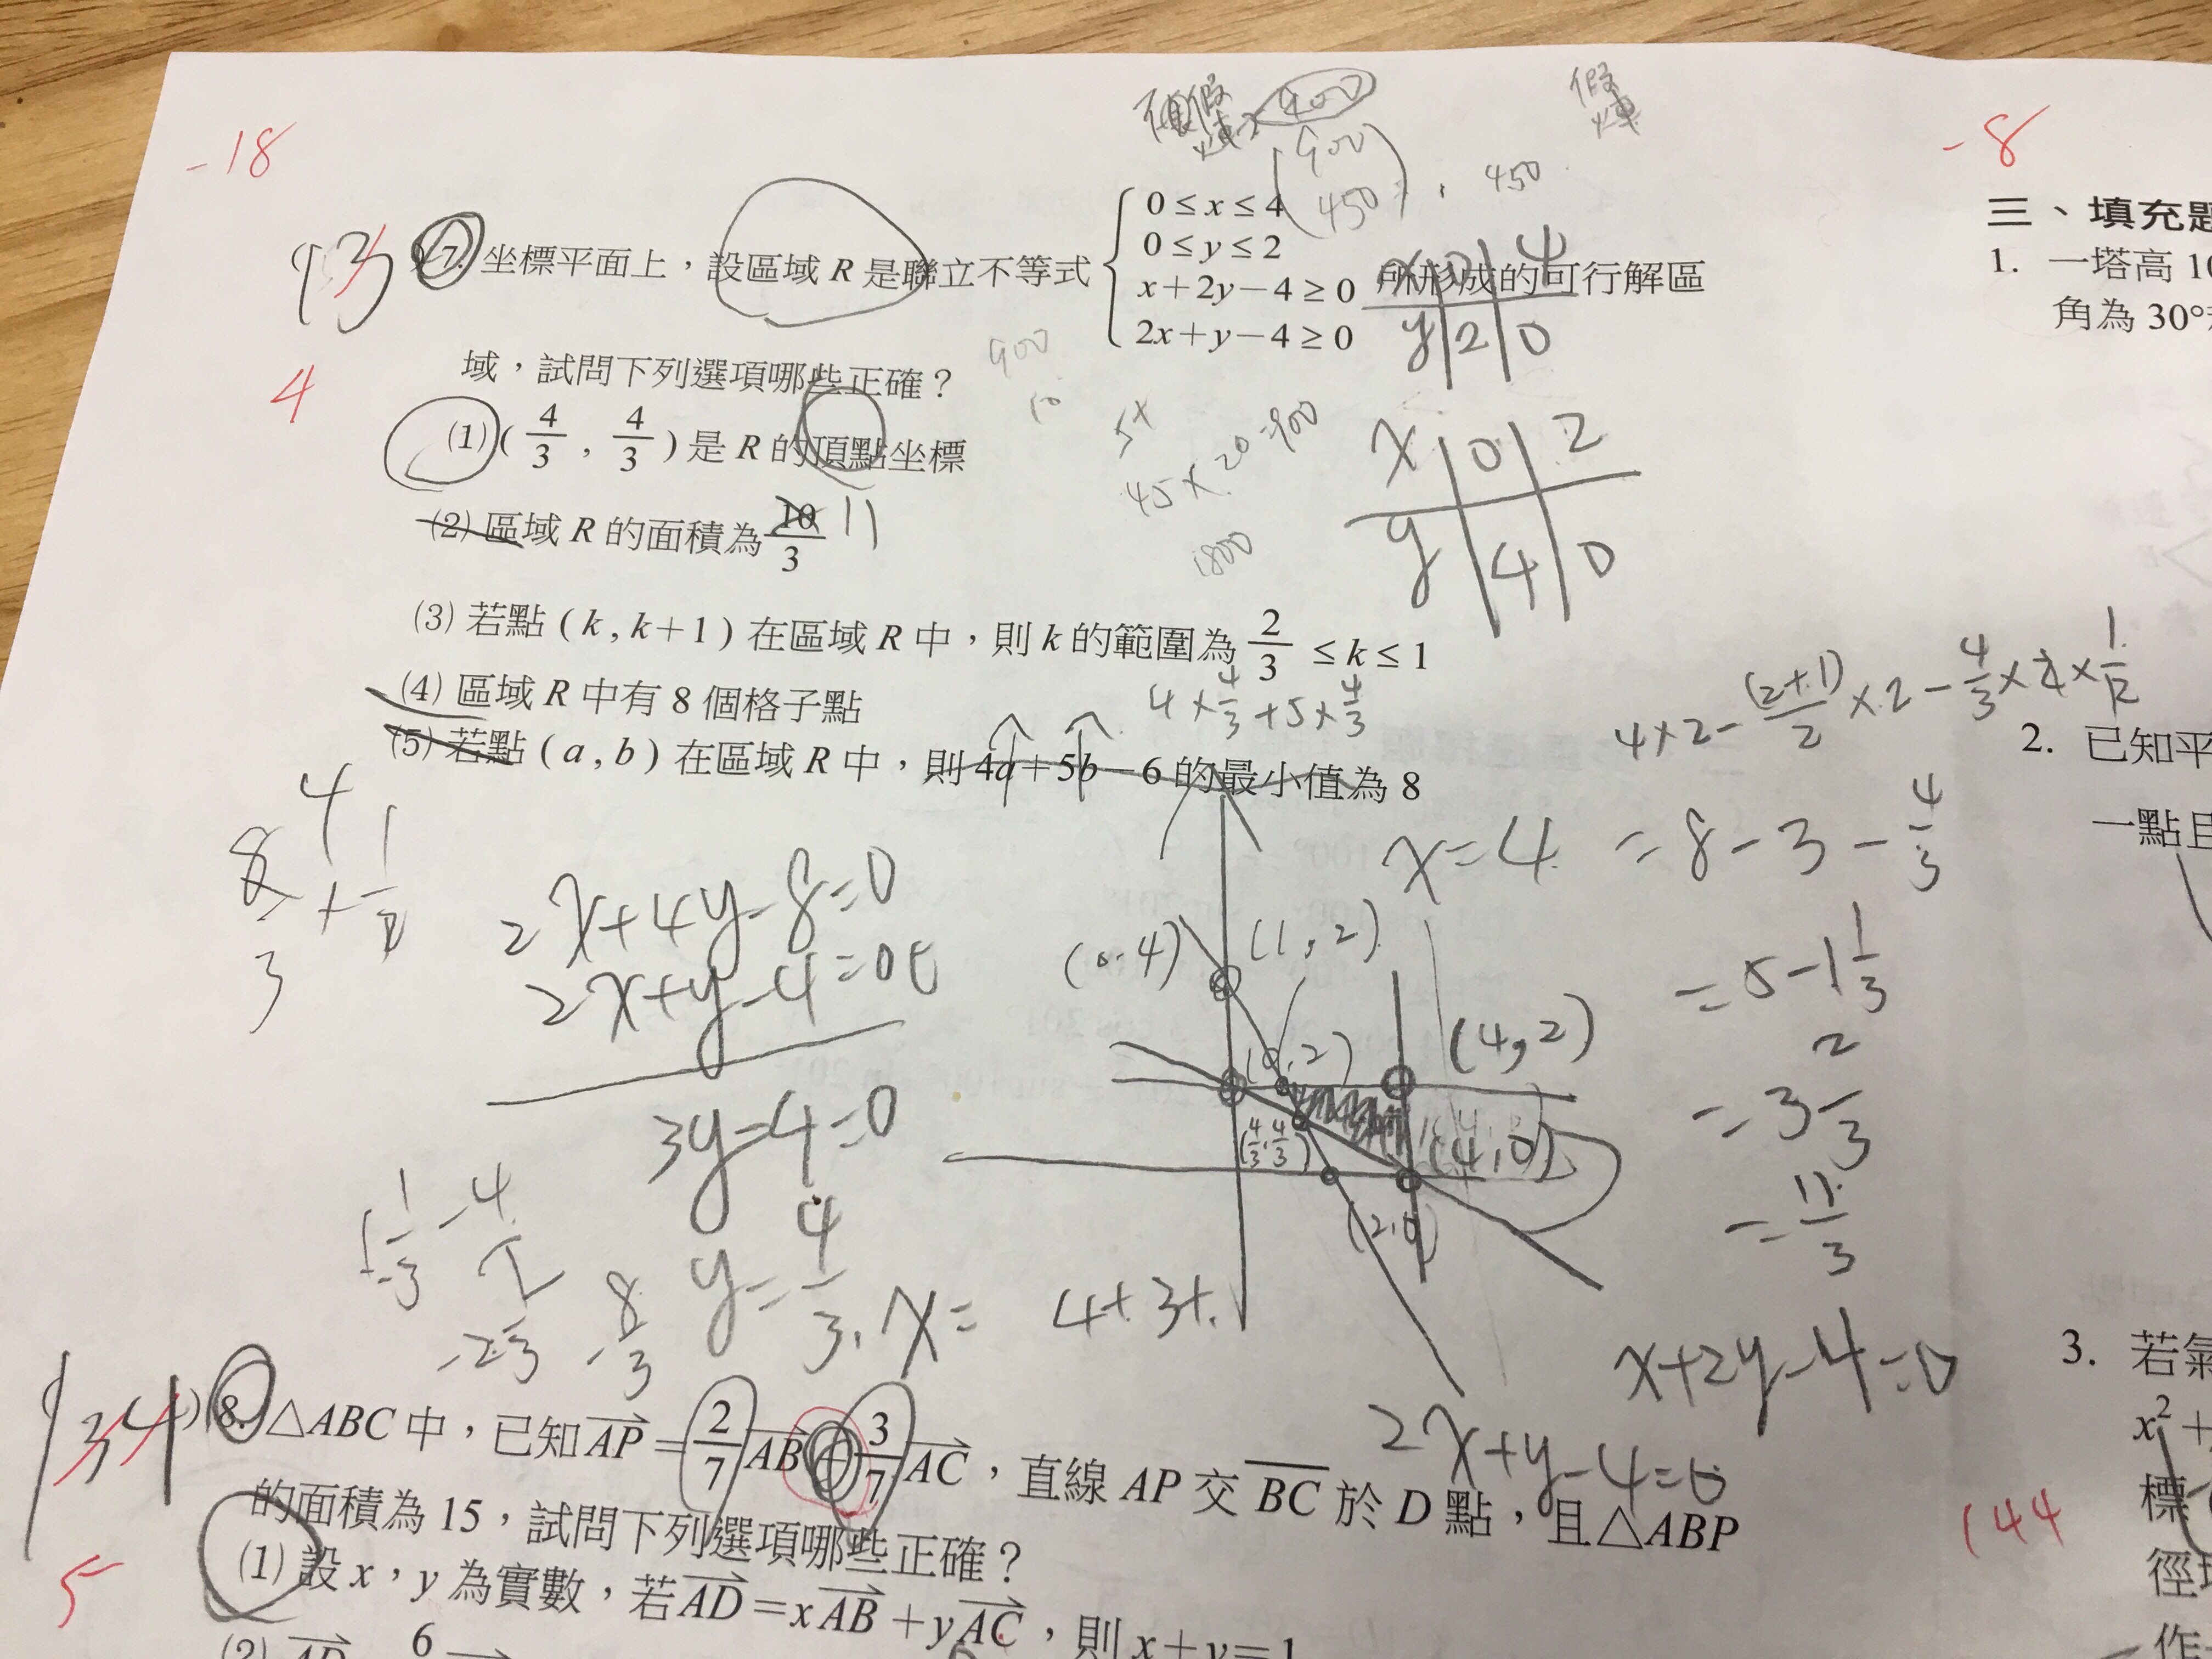 -18
-8
400
900
450
450
假
13
7. 坐標平面上，設區域 R 是聯立不等式
0 ≤ x ≤ 4
0 ≤ y ≤ 2
x + 2y − 4 ≥ 0
2x + y − 4 ≥ 0
所形成的可行解區
x 0 4
y 2 0
域，試問下列選項哪些正確？
4
900
10
(1) ( 4/3 , 4/3 ) 是 R 的頂點坐標
45 × 20 = 900
1800
x 0 2
y 4 0
(2) 區域 R 的面積為 10/3 11
(3) 若點 ( k , k + 1 ) 在區域 R 中，則 k 的範圍為 2/3 ≤ k ≤ 1
(4) 區域 R 中有 8 個格子點
4 × 4/3 + 5 × 4/3
(5) 若點 ( a , b ) 在區域 R 中，則 4a + 5b − 6 的最小值為 8
4 × 2 − (2+1)/2 × 2 − 4/3 × 2 × 1/2
= 8 − 3 − 4/3
= 5 − 1 1/3
= 3 2/3
= 11/3
x = 4
2x + 4y − 8 = 0
2x + y − 4 = 0
3y − 4 = 0
y = 4/3, x =
(0, 4)
(1, 2)
(0, 2)
(4, 2)
(4/3, 4/3)
(4, 0)
(2, 0)
x + 2y − 4 = 0
2x + y − 4 = 0
8/3
4
× 1/2
1 1/3 − 4
−2 2/3
−8/3
134
8. △ABC 中，已知 AP = 2/7 AB + 3/7 AC ，直線 AP 交 BC 於 D 點，且△ABP
的面積為 15，試問下列選項哪些正確？
5
(1) 設 x，y 為實數，若 AD = x AB + y AC ，則 x + y = 1
(2)
6
三、填充題
1. 一塔高 10
角為 30°
2. 已知平
一點且
3. 若氣
x² +
標
徑
作
144